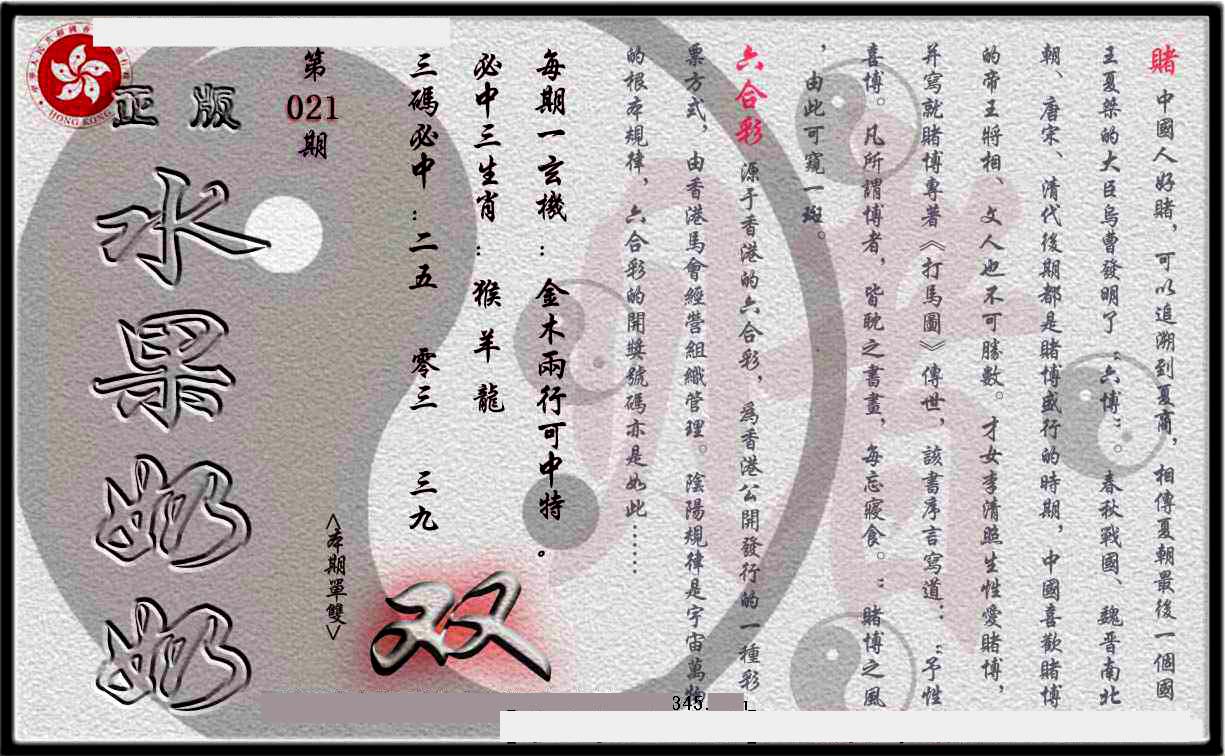 賭 中國人好賭，可以追溯到夏商，相傳夏朝最後一個國
王夏桀的大臣烏曹發明了“六博”。春秋戰國、魏晋南北
朝、唐宋、清代後期都是賭博盛行的時期，中國喜歡賭博
的帝王將相、文人也不可勝數。才女李清照生性愛賭博，
并寫就賭博專著《打馬圖》傳世，該書序言寫道：“予性
喜博。凡所謂博者，皆耽之書畫，每忘寢食。”賭博之風
，由此可窺一斑。
六合彩 源于香港的六合彩，爲香港公開發行的一種彩
票方式，由香港馬會經營組織管理。陰陽規律是宇宙萬物
的根本規律，六合彩的開獎號碼亦是如此……
每期一玄機：金木兩行可中特。
必中三生肖：猴 羊 龍
三碼必中：二五 零三 三九
<本期單雙>
双
第021期
正版
水果奶奶
HONG KONG
345.